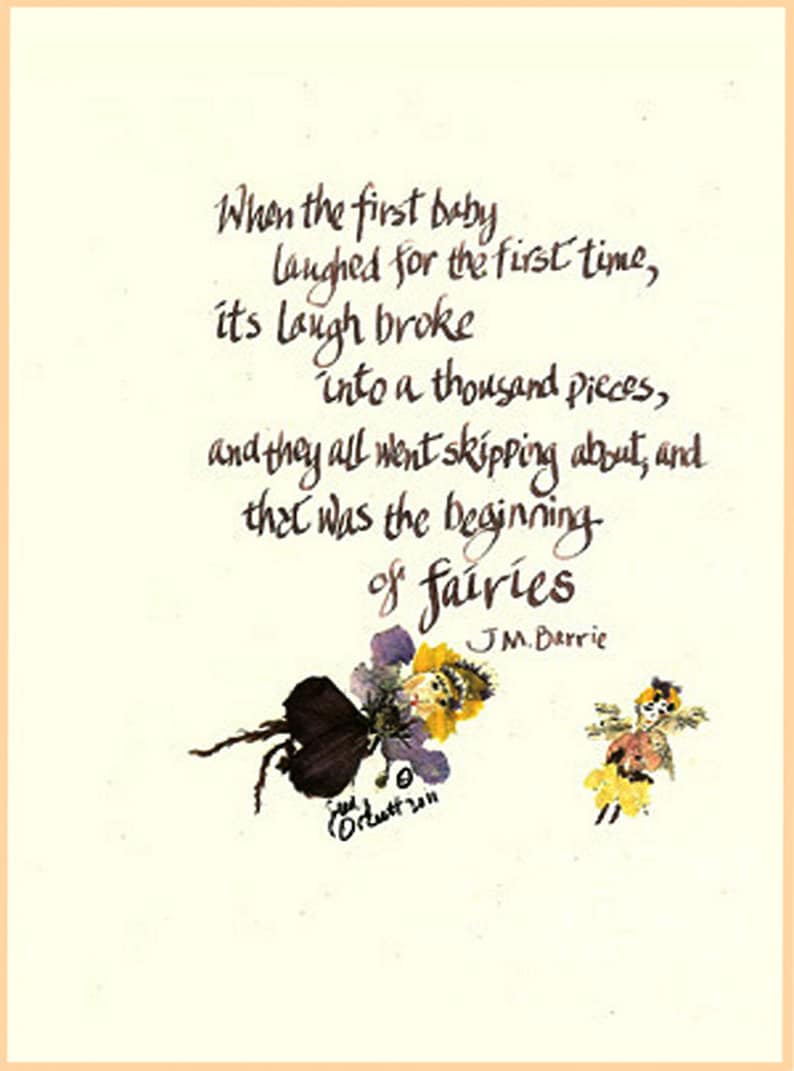 When the first baby
laughed for the first time,
its laugh broke
into a thousand pieces,
and they all went skipping about, and
that was the beginning
of fairies
J M. Barrie
©
2011